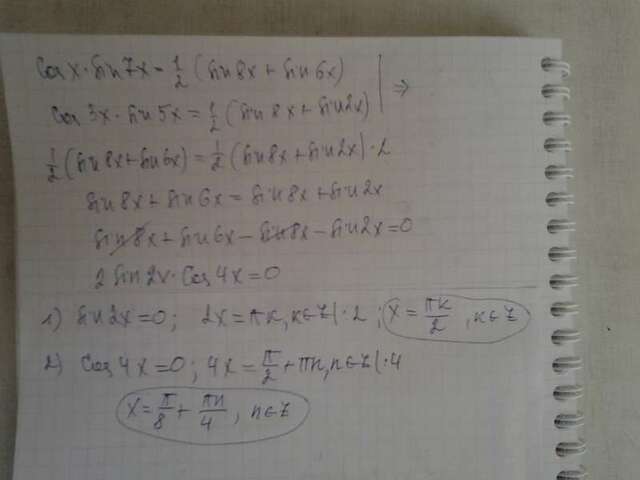 Cos x · Sin 7x = 1/2 (Sin 8x + Sin 6x)
Cos 3x · Sin 5x = 1/2 (Sin 8x + Sin 2x) | ⇒
1/2 (Sin 8x + Sin 6x) = 1/2 (Sin 8x + Sin 2x) · 2
Sin 8x + Sin 6x = Sin 8x + Sin 2x
Sin 8x + Sin 6x - Sin 8x - Sin 2x = 0
2 Sin 2x · Cos 4x = 0
1) Sin 2x = 0; 2x = πk, k∈Z | · 2; x = πk/2, k∈Z
2) Cos 4x = 0; 4x = π/2 + πn, n∈Z | · 4
x = π/8 + πn/4, n∈Z